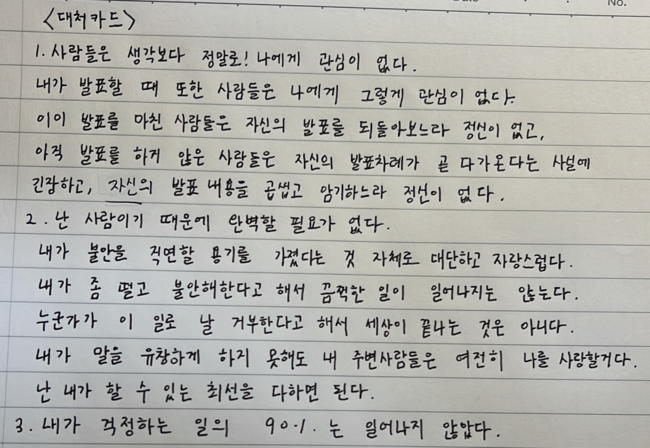 <대처카드>
1. 사람들은 생각보다 정말로! 나에게 관심이 없다.
내가 발표할 때 또한 사람들은 나에게 그렇게 관심이 없다.
이이 발표를 마친 사람들은 자신의 발표를 되돌아보느라 정신이 없고,
아직 발표를 하게 않은 사람들은 자신의 발표차례가 곧 다가온다는 사실에
긴장하고, 자신의 발표 내용을 곱씹고 암기하느라 정신이 없다.
2. 난 사람이기 때문에 완벽할 필요가 없다.
내가 불안을 직면할 용기를 가졌다는 것 자체로 대단하고 자랑스럽다.
내가 좀 떨고 불안해한다고 해서 끔찍한 일이 일어나지는 않는다.
누군가가 이 일로 날 거부한다고 해서 세상이 끝나는 것은 아니다.
내가 말을 유창하게 하지 못해도 내 주변사람들은 여전히 나를 사랑할거다.
난 내가 할 수 있는 최선을 다하면 된다.
3. 내가 걱정하는 일의 90%는 일어나지 않았다.
No.